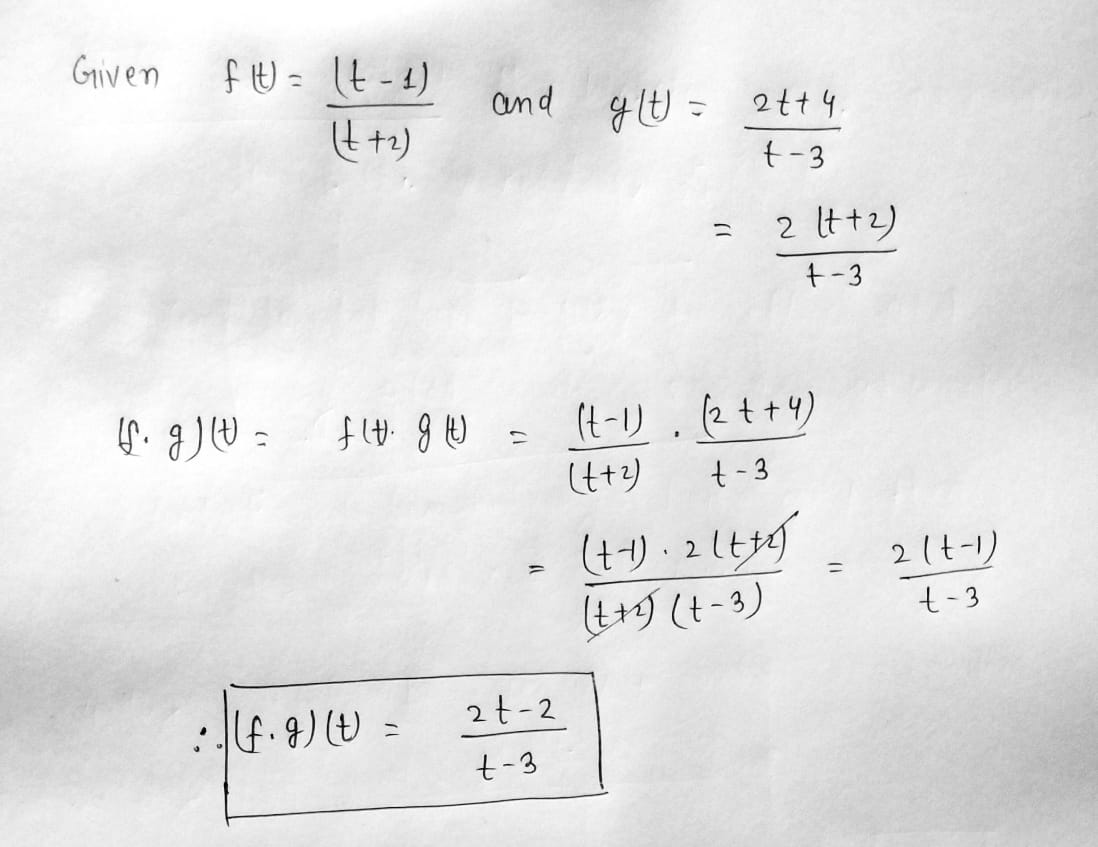 Given f(t) = (t-1)/(t+2) and g(t) = 2t+4/t-3
= 2(t+2)/t-3
(f.g)(t) = f(t).g(t) = (t-1)/(t+2) . (2t+4)/t-3
= (t-1).2(t+2)/(t+2)(t-3) = 2(t-1)/t-3
∴ (f.g)(t) = 2t-2/t-3